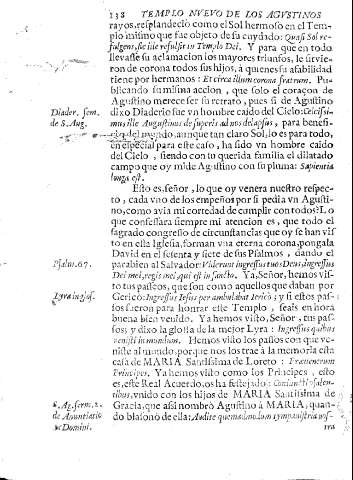 138 TEMPLO NUEVO DE LOS AGUSTINOS
rayos, resplandeciò como el Sol hermoso en el Tem-
plo mismo que fue objeto de su cuydado: Quasi Sol re-
fulgens, sic iste refulsit in Templo Dei. Y para que en todo
llevasse su aclamacion los mayores triunfos, le sirvie-
ron de corona todos sus hijos, à quienes su afabilidad
tiene por hermanos: Et circa illum corona fratrum. Pu-
blicando su misma accion, que solo el coraçon de
Agustino merece ser su retrato, pues si de Agustino
Diader. sem. de S. Aug.
dixo Diaderio fue vn hombre caido del Cielo: Celsissi-
mus ille Augustinus de superis ad nos delapsus, para benefi-
del mundo, aunque tan claro Sol, lo es para todo,
en especial para este caso, ha sido vn hombre caido
del Cielo, siendo con tu querida familia el dilatado
campo que oy mide Agustino con su pluma: Sapientia
longa est.
Esto es, señor, lo que oy venera nuestro respec-
to, cada vno de los empeños por si pedia vn Agusti-
no, como avia mi cortedad de cumplir con todos? Lo
que confessara siempre mi atencion es, que todo el
sagrado congresso de circunstancias que oy se han vis-
to en esta Iglesia, forman vna eterna corona, pongala
David en el sesenta y siete de sus Psalmos, dando el
Psalm. 67.
parabien al Salvador: Viderunt ingressus tuos Deus, ingressus
Dei mei, regis mei, qui est in sancto. Ya, Señor, hemos vis-
to tus passeos, que son como aquellos que daban por
Lyra in Jos.
Gericò: Ingressus Iesus per ambulabat Iericò; y si estos pas-
sos fueron para honrar este Templo, seais en hora
buena bien venido. Ya hemos visto, Señor, tus pas-
sos; y dixo la glossa de la mejor Lyra: Ingressus quibus
venisti in mundum. Hemos visto los passos con que ve-
niste al mundo, por que nos los trae à la memoria esta
casa de MARIA Santissima de Loreto:
Principes. Ya hemos visto como los Principes, esto
es, este Real Acuerdo, os ha festejado:
tibus, vnido con los hijos de MARIA Santissima de
S. Ag. serm. 2. de Anuntiatio ne Domini.
Gracia, que assi nombrò Agustino à MARIA, quan-
do blasonò de ella: Audite quemadmodum tympanistria nos-
tra